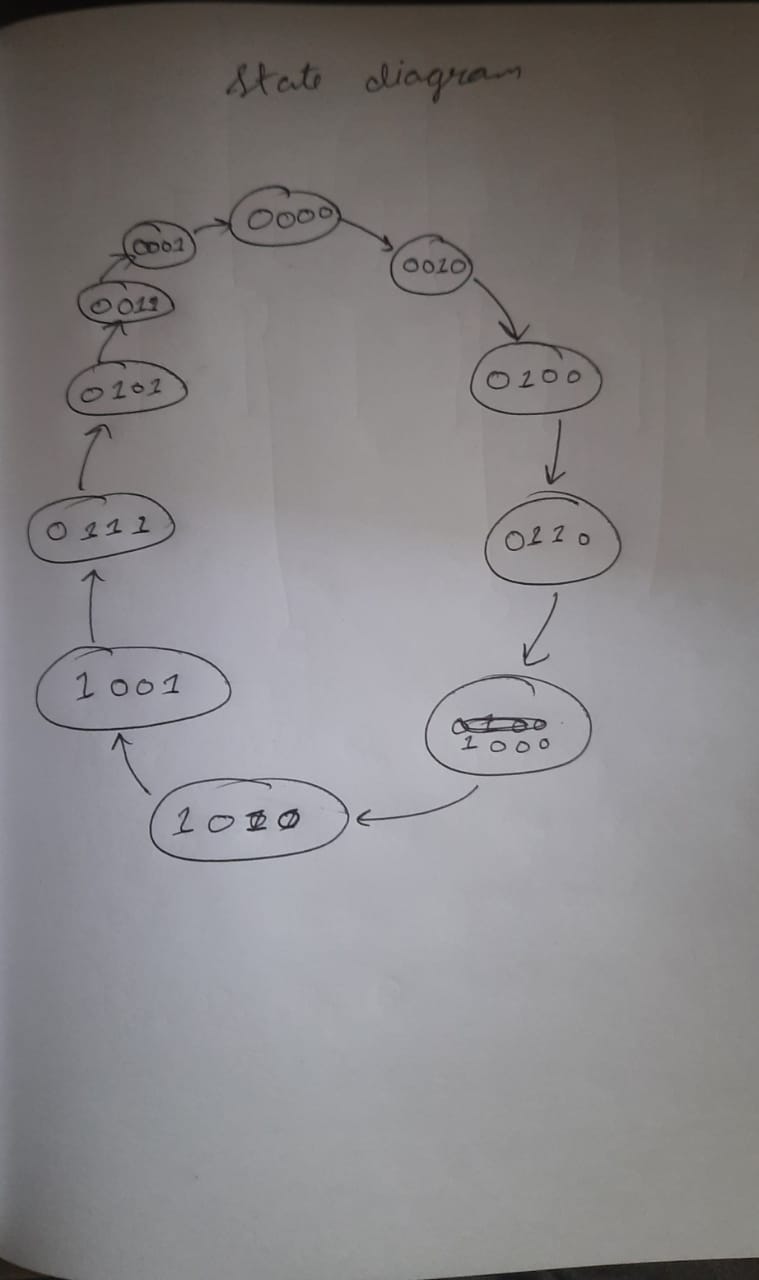 State diagram
0000
0001
0010
0011
0100
0101
0110
0111
1001
1000
1010